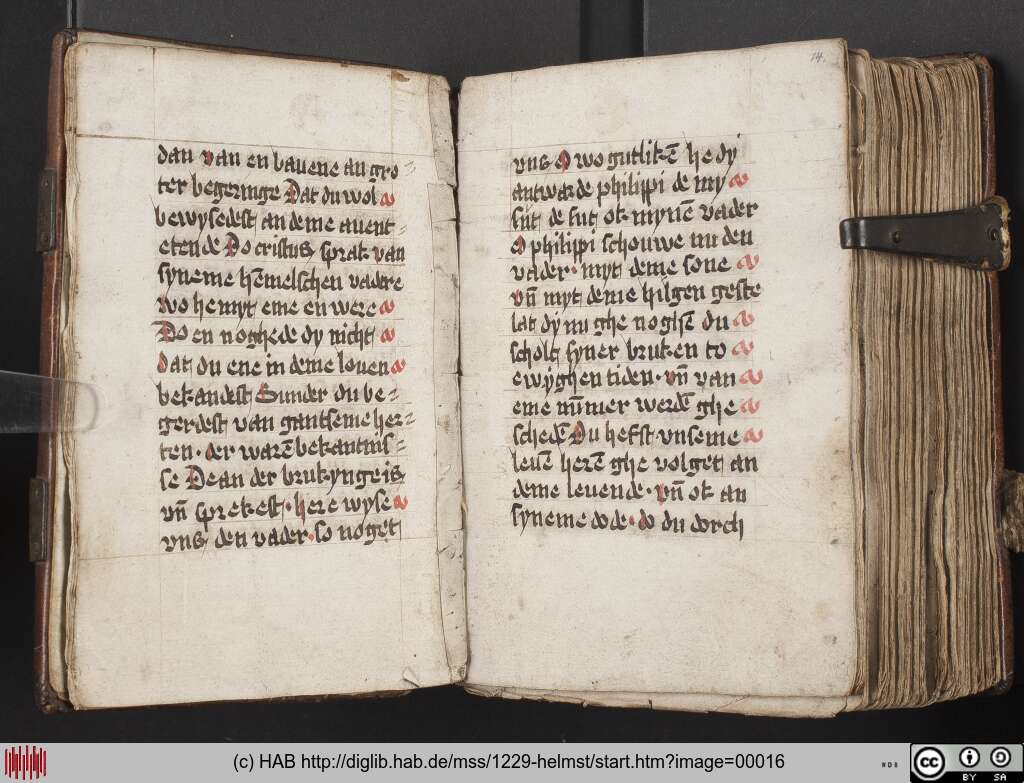 dan van en bauene an gro
ter begeringe Dat du wol
bewysedest an deme auent=
etende Do cristus sprak van
syneme hēmelschen vadere
wo he myt eme en were
Do en noghede dy nicht
dat du ene in deme louen
bekandest Sunder du be=
gerdest van gantseme her=
ten · der warē bekantnis=
se Dean der brukynge is
vn̄ sprekest · here wyse
vns den vader · so noget
14.
vns O wo gutlikē he dy
antwarde philippi de my
sut de sut ok mynē vader
O philippi schouwe nu den
vader · myt deme sone
vn̄ myt deme hilgen geste
lat dy nu ghe noghē du
scholt syner bruken to
ewyghen tiden · vn̄ van
eme nūmer werdē ghe
schedē Du hefst vnseme
leuē herē ghe volget an
deme leuende · vn̄ ok an
syneme dode · do du dorch
(c) HAB http://diglib.hab.de/mss/1229-helmst/start.htm?image=00016
WDB
cc BY SA